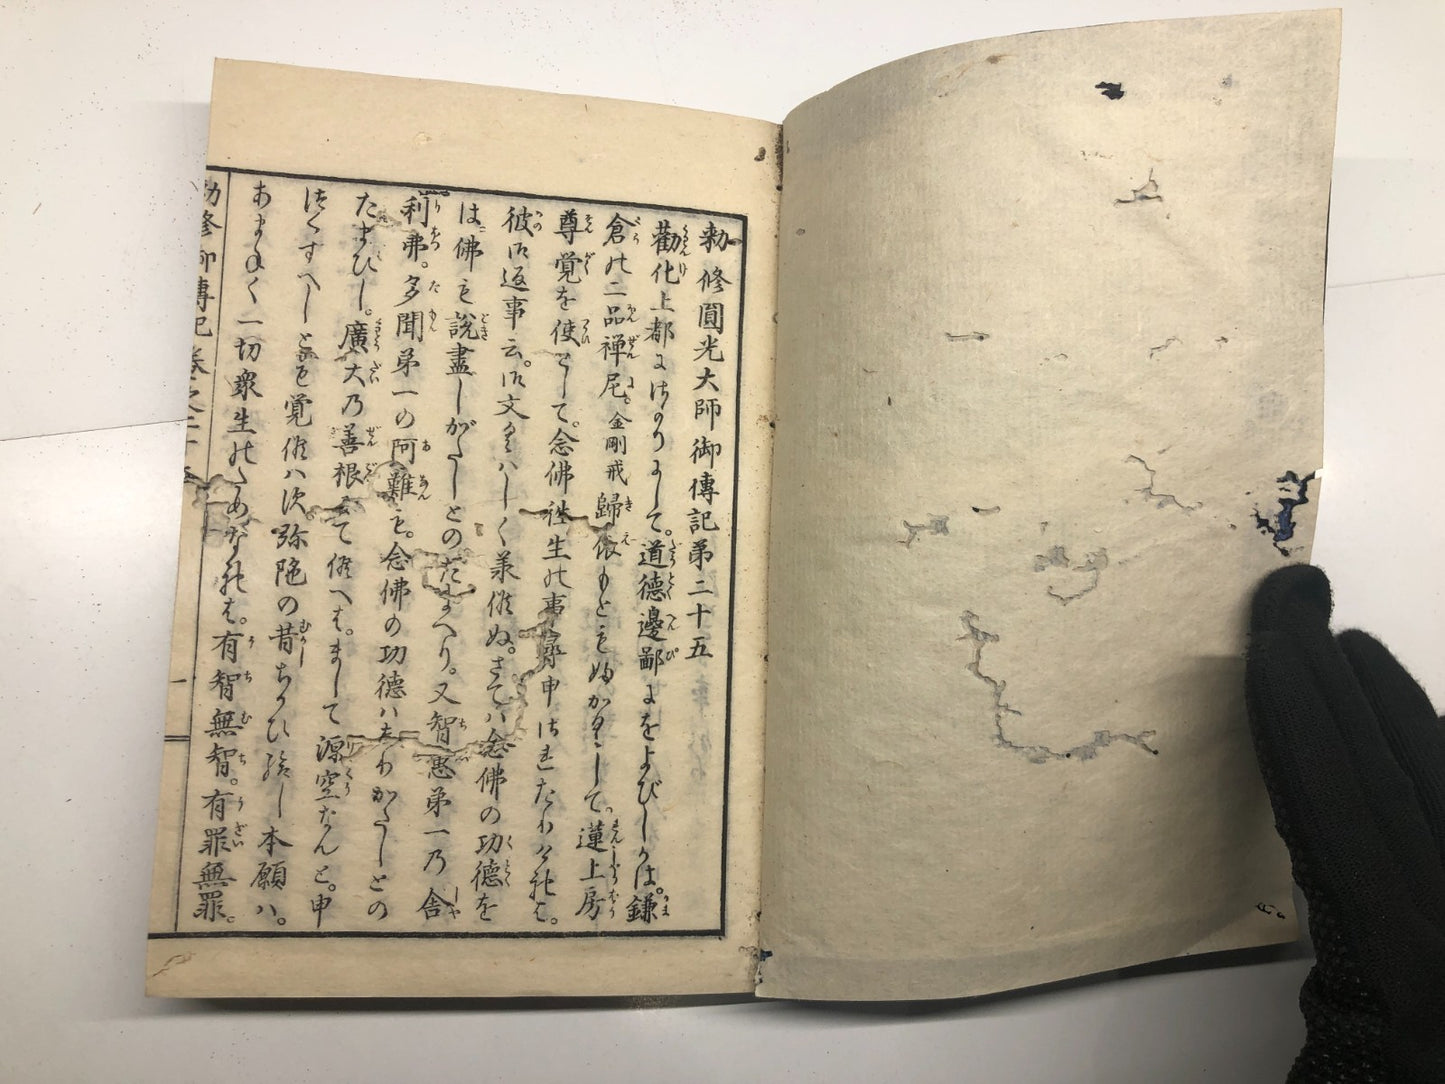 勅修圓光大師御傳記第二十五
勸化上都にはしめて。道徳邊鄙にをよびしかは。鎌
倉の二品禅尼。金剛戒歸依もともふかくして。蓮上房
尊覚を使として。念佛往生の事尋申されたりければ。
彼御返事云。御文くはしく承候ぬ。さては念佛の功徳を
は佛も説盡しがたしとのたまへり。又智恵第一乃舎
利弗。多聞第一の阿難も。念佛の功徳ハしりがたしとの
たまひし。廣大乃善根にて候へば。まして源空なんと。申
つくすへしとも覚候ハず。弥陀の昔ちかひ給し本願ハ。
あまねく一切衆生のためなれば。有智無智。有罪無罪。
勅修御傳記 巻之二十